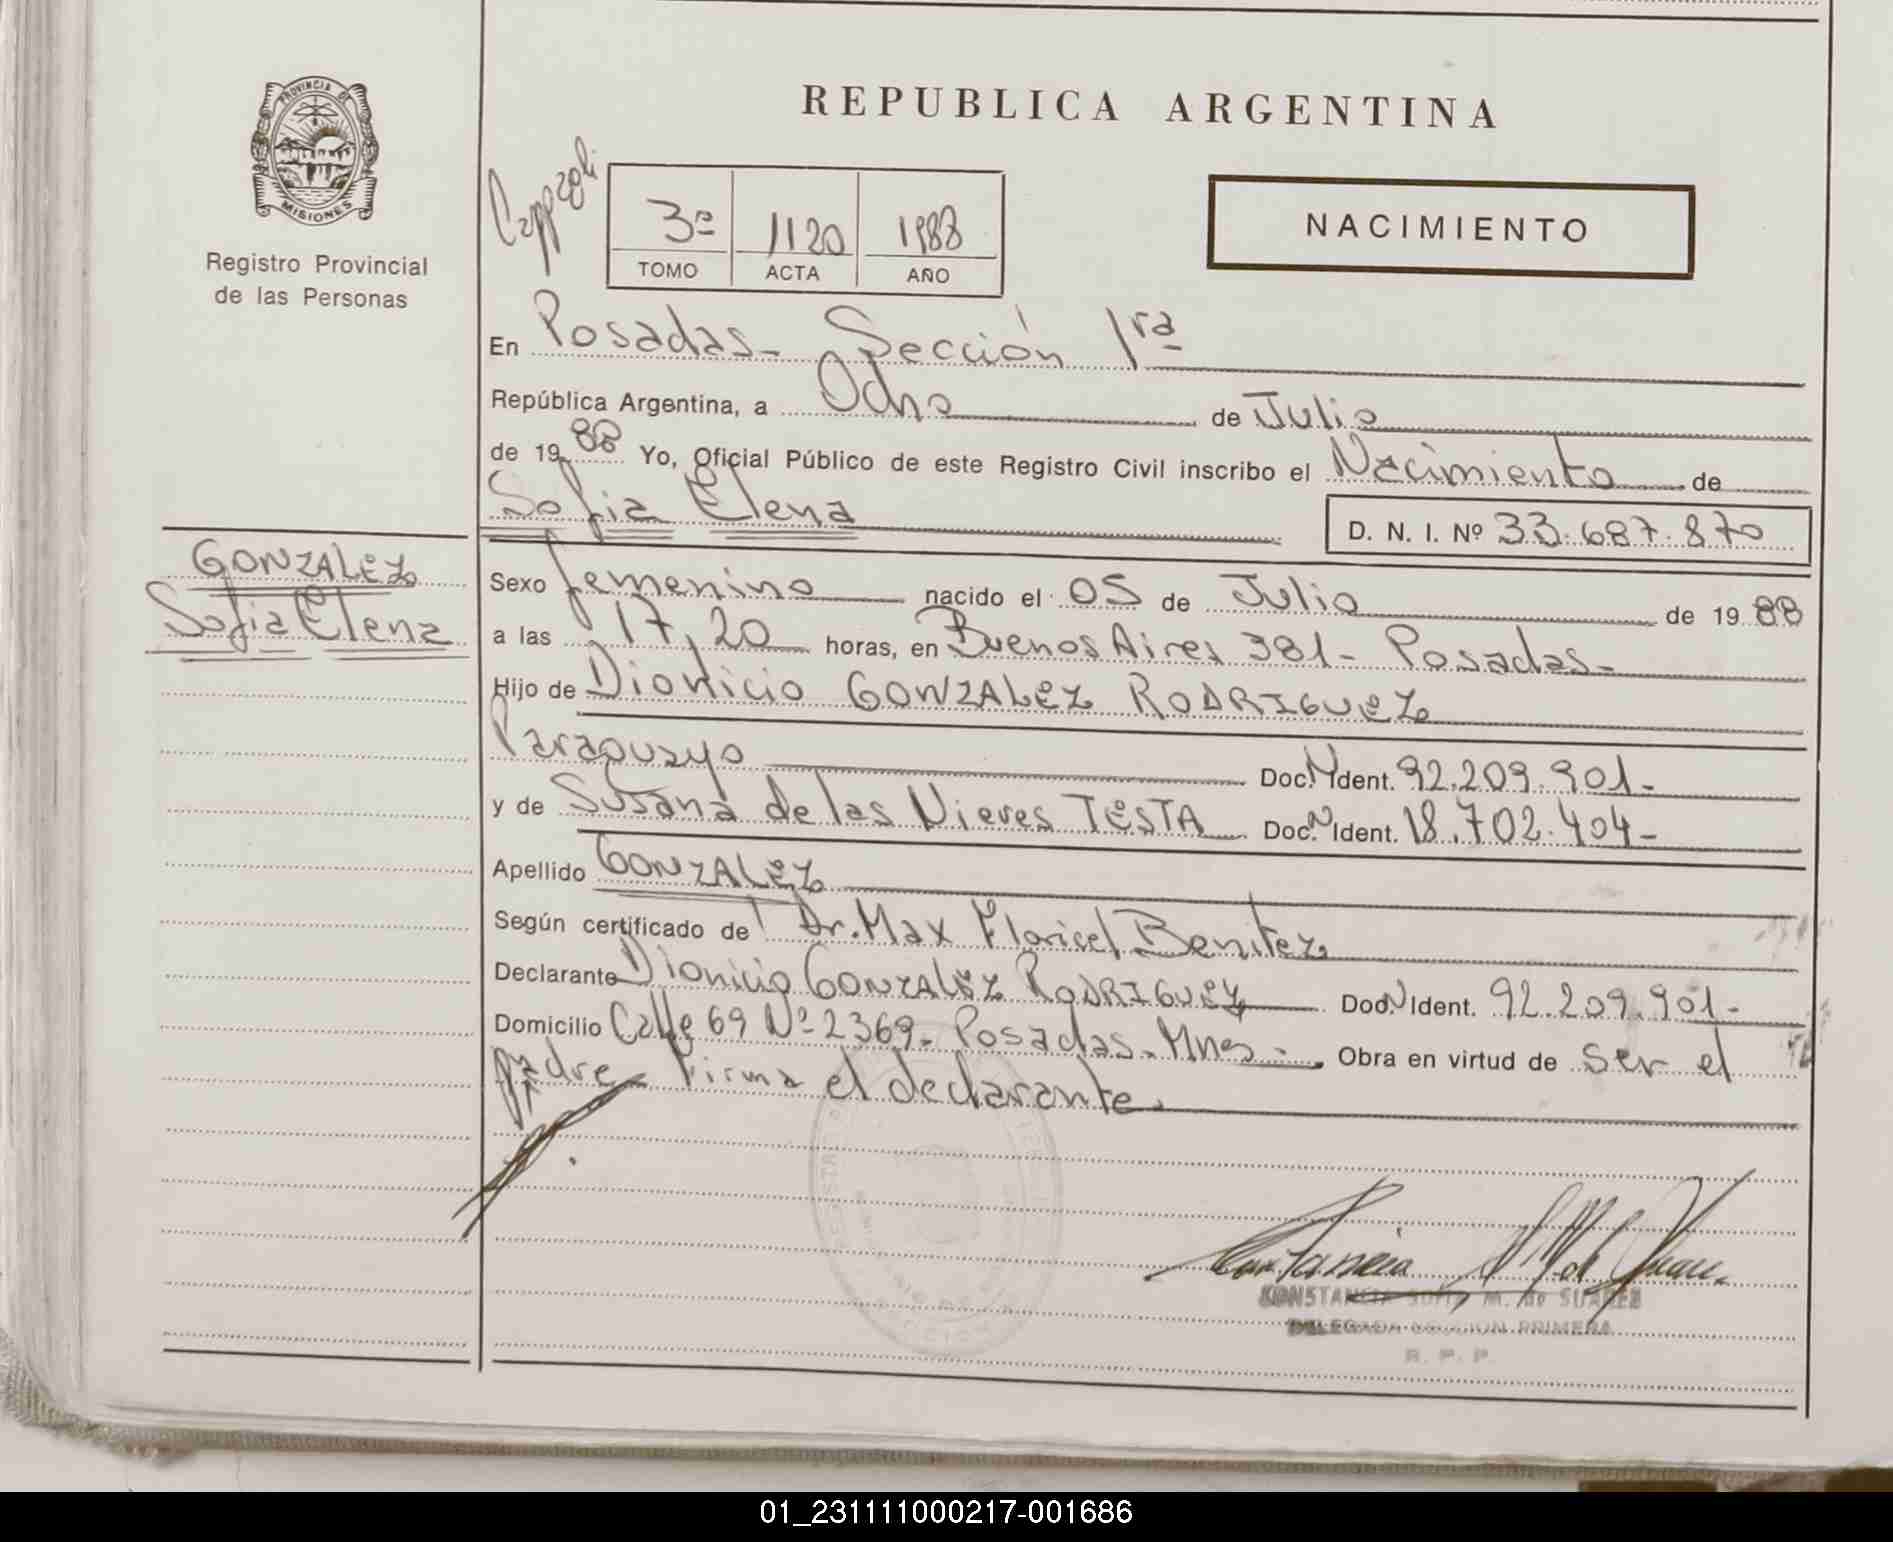 PROVINCIA DE
MISIONES
Registro Provincial
de las Personas
REPUBLICA ARGENTINA
3º 1120 1988
TOMO ACTA AÑO
NACIMIENTO
En Posadas- Sección 1ra
República Argentina, a Ocho de Julio
de 1988 Yo, Oficial Público de este Registro Civil inscribo el Nacimiento de
Sofia Elena
D. N. I. Nº 33.687.870
GONZALEZ
Sofia Elena
Sexo femenino nacido el 05 de Julio de 1988
a las 17,20 horas, en Buenos Aires 381- Posadas-
Hijo de Dionicio GONZALEZ RODRIGUEZ
Paraguayo Doc. N Ident. 92.209.901-
y de Susana de las Nieves TESTA Doc. N Ident. 18.702.404-
Apellido GONZALEZ
Según certificado de Dr. Max Floricel Benitez
Declarante Dionicio GONZALEZ RODRIGUEZ Doc. N Ident. 92.209.901-
Domicilio Calle 69 Nº 2369- Posadas- Mnes- Obra en virtud de ser el
padre- Firma el declarante.
CONSTANCIA SOFIA M. de SUAREZ
DELEGADA SECCION PRIMERA
R. P. P.
01_231111000217-001686